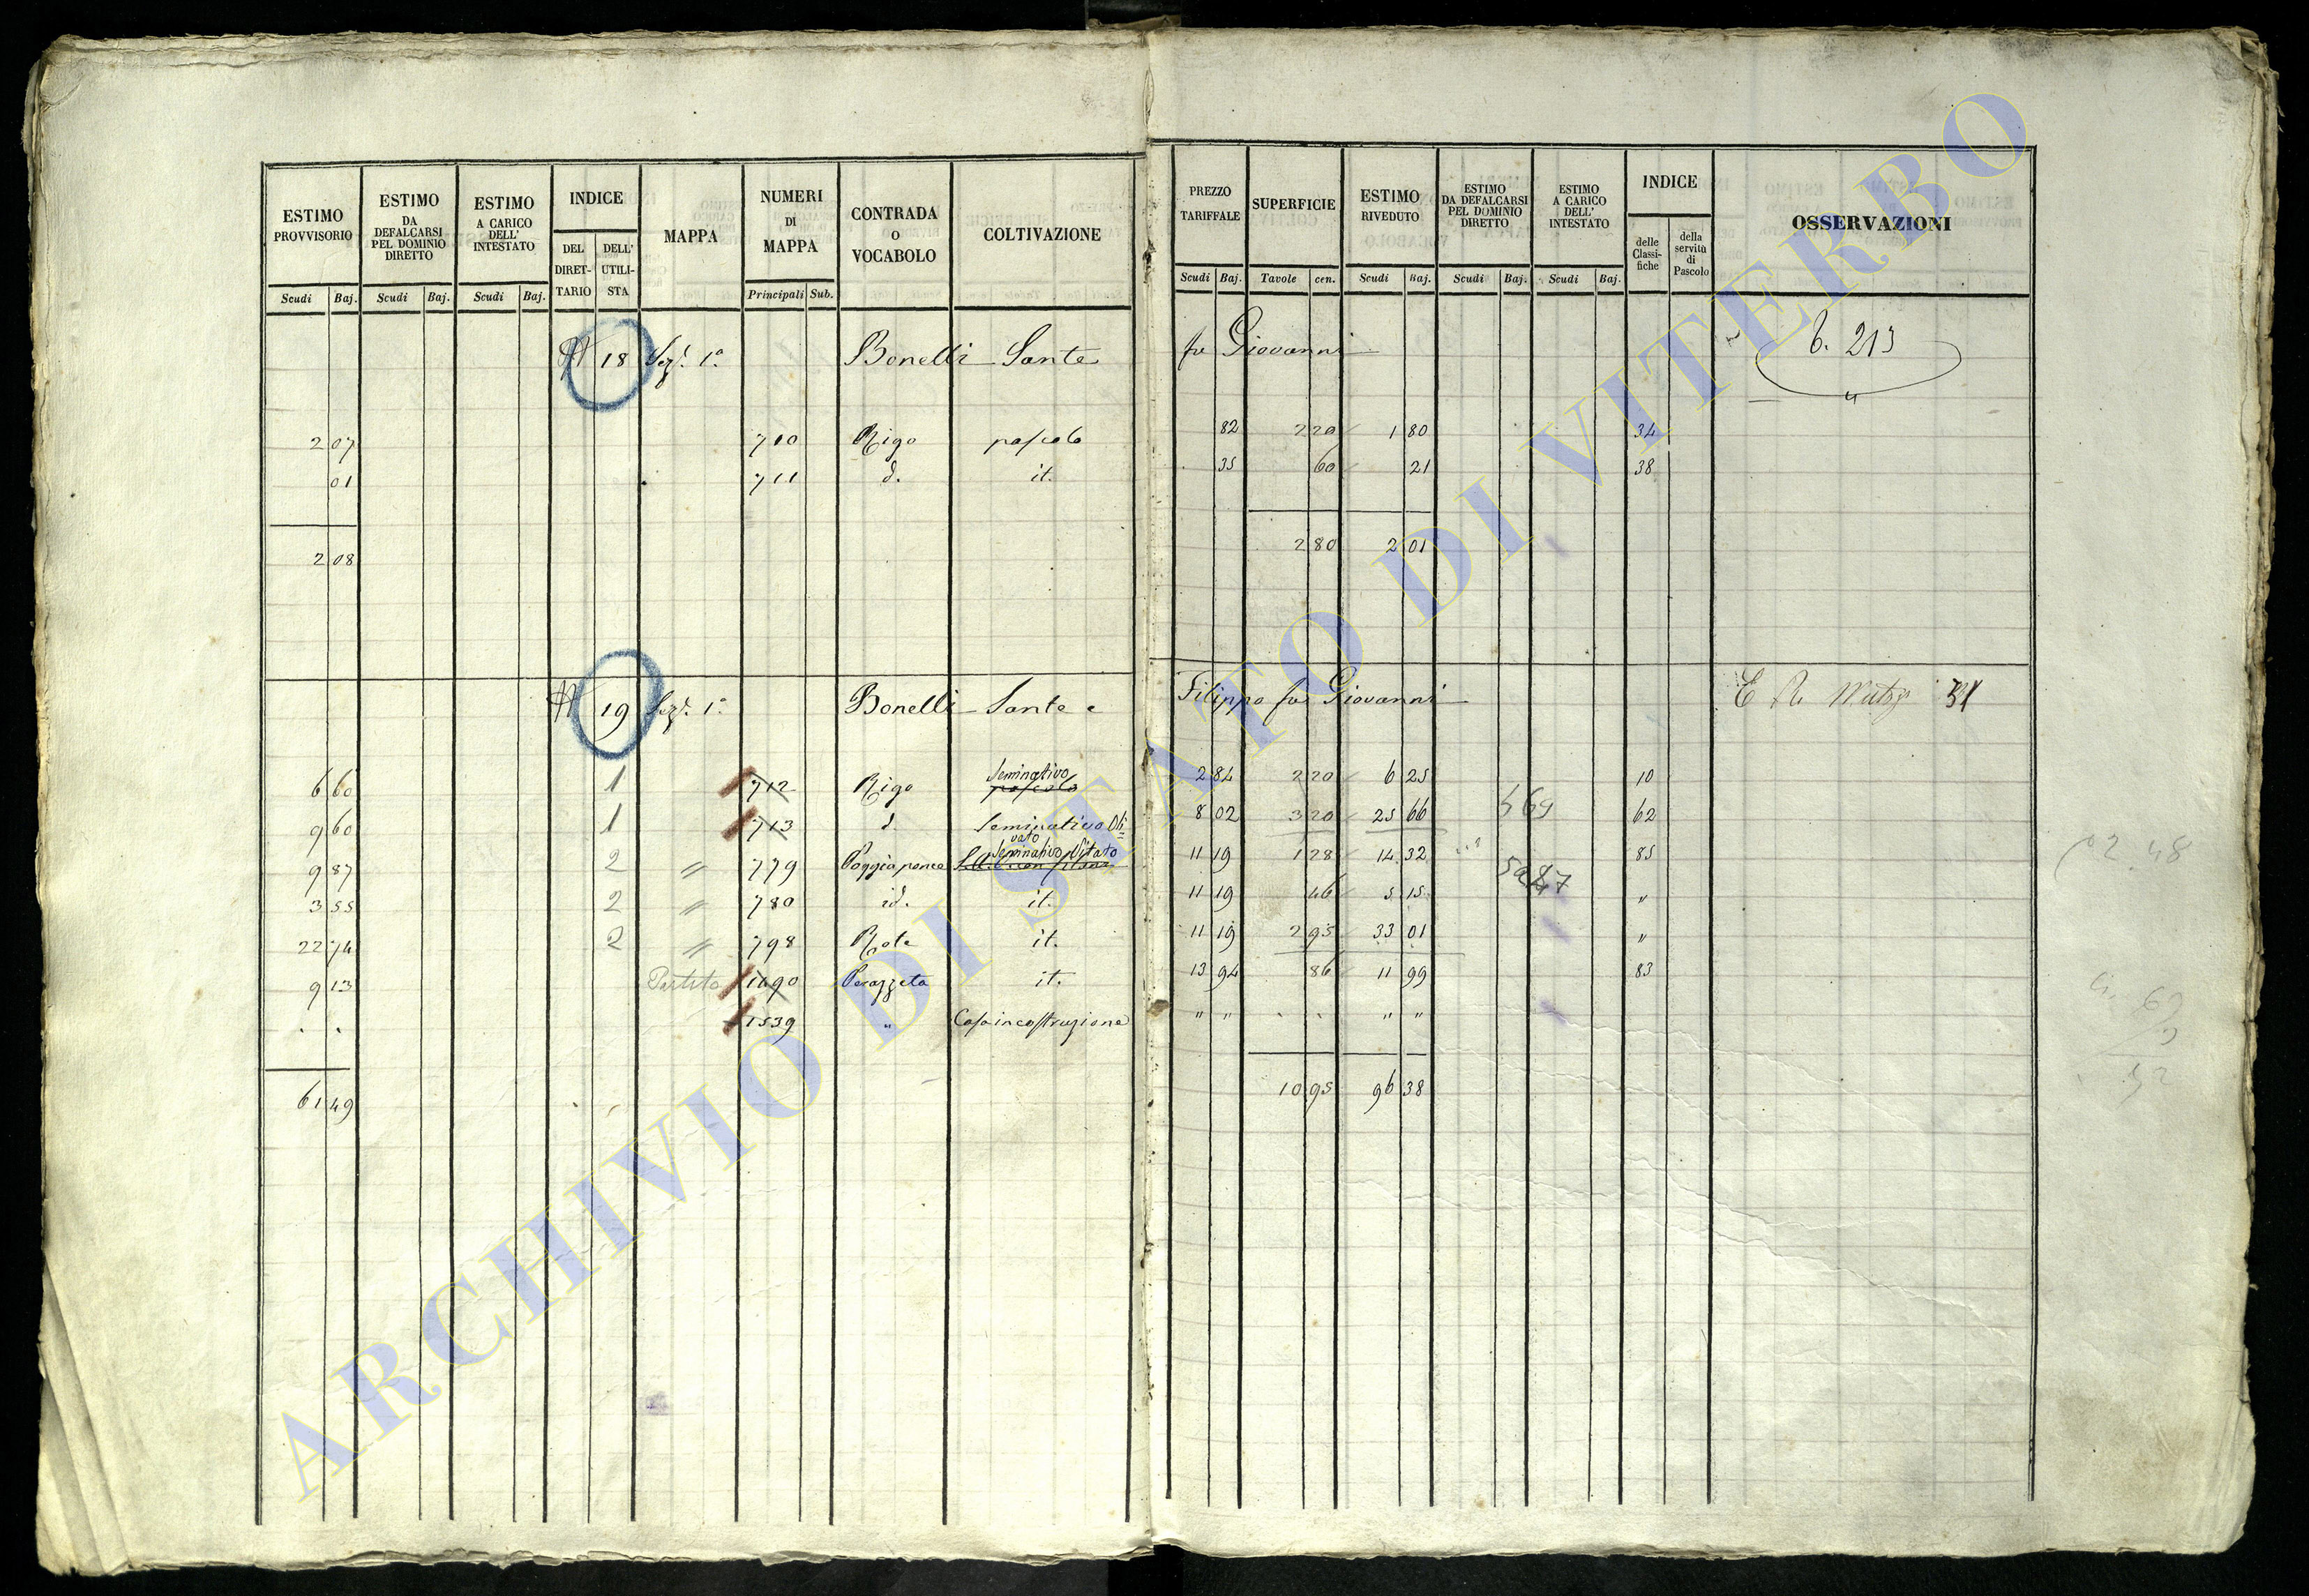 ESTIMO PROVVISORIO | ESTIMO DA DEFALCARSI PEL DOMINIO DIRETTO | ESTIMO A CARICO DELL' INTESTATO | INDICE | MAPPA | NUMERI DI MAPPA | CONTRADA O VOCABOLO | COLTIVAZIONE | PREZZO TARIFFALE | SUPERFICIE | ESTIMO RIVEDUTO | ESTIMO DA DEFALCARSI PEL DOMINIO DIRETTO | ESTIMO A CARICO DELL' INTESTATO | INDICE | OSSERVAZIONI
DEL DIRETTARIO | DELL' UTILISTA | delle Classifiche | della servitù di Pascolo
Scudi | Baj. | Scudi | Baj. | Scudi | Baj. | Principali | Sub. | Scudi | Baj. | Tavole | cen. | Scudi | Baj. | Scudi | Baj. | Scudi | Baj.
18 Sez. 1a Bonelli Sante fu Giovanni 213
2 07 710 Rigo pascolo 82 2 20 1 80 34
01 711 d. it. 35 60 21 38
2 08 2 80 2 01
19 Sez. 1a Bonelli Sante e Filippo fu Giovanni
Seminativo
6 60 1 712 Rigo pascolo 2 84 2 20 6 25 10
9 60 1 713 d. Seminativo Olivato 8 02 3 20 25 66 62
Seminativo Vitato
9 87 2 " 779 11 19 1 28 14 32 85
3 55 2 " 780 id. it. 11 19 46 5 15 "
22 74 2 " 798 it. 11 19 2 95 33 01 "
9 13 Partita 1490 it. 13 94 86 11 99 83
1539 " Casa in costruzione " " " "
61 49 10 95 96 38
02.48
ARCHIVIO DI STATO DI VITERBO